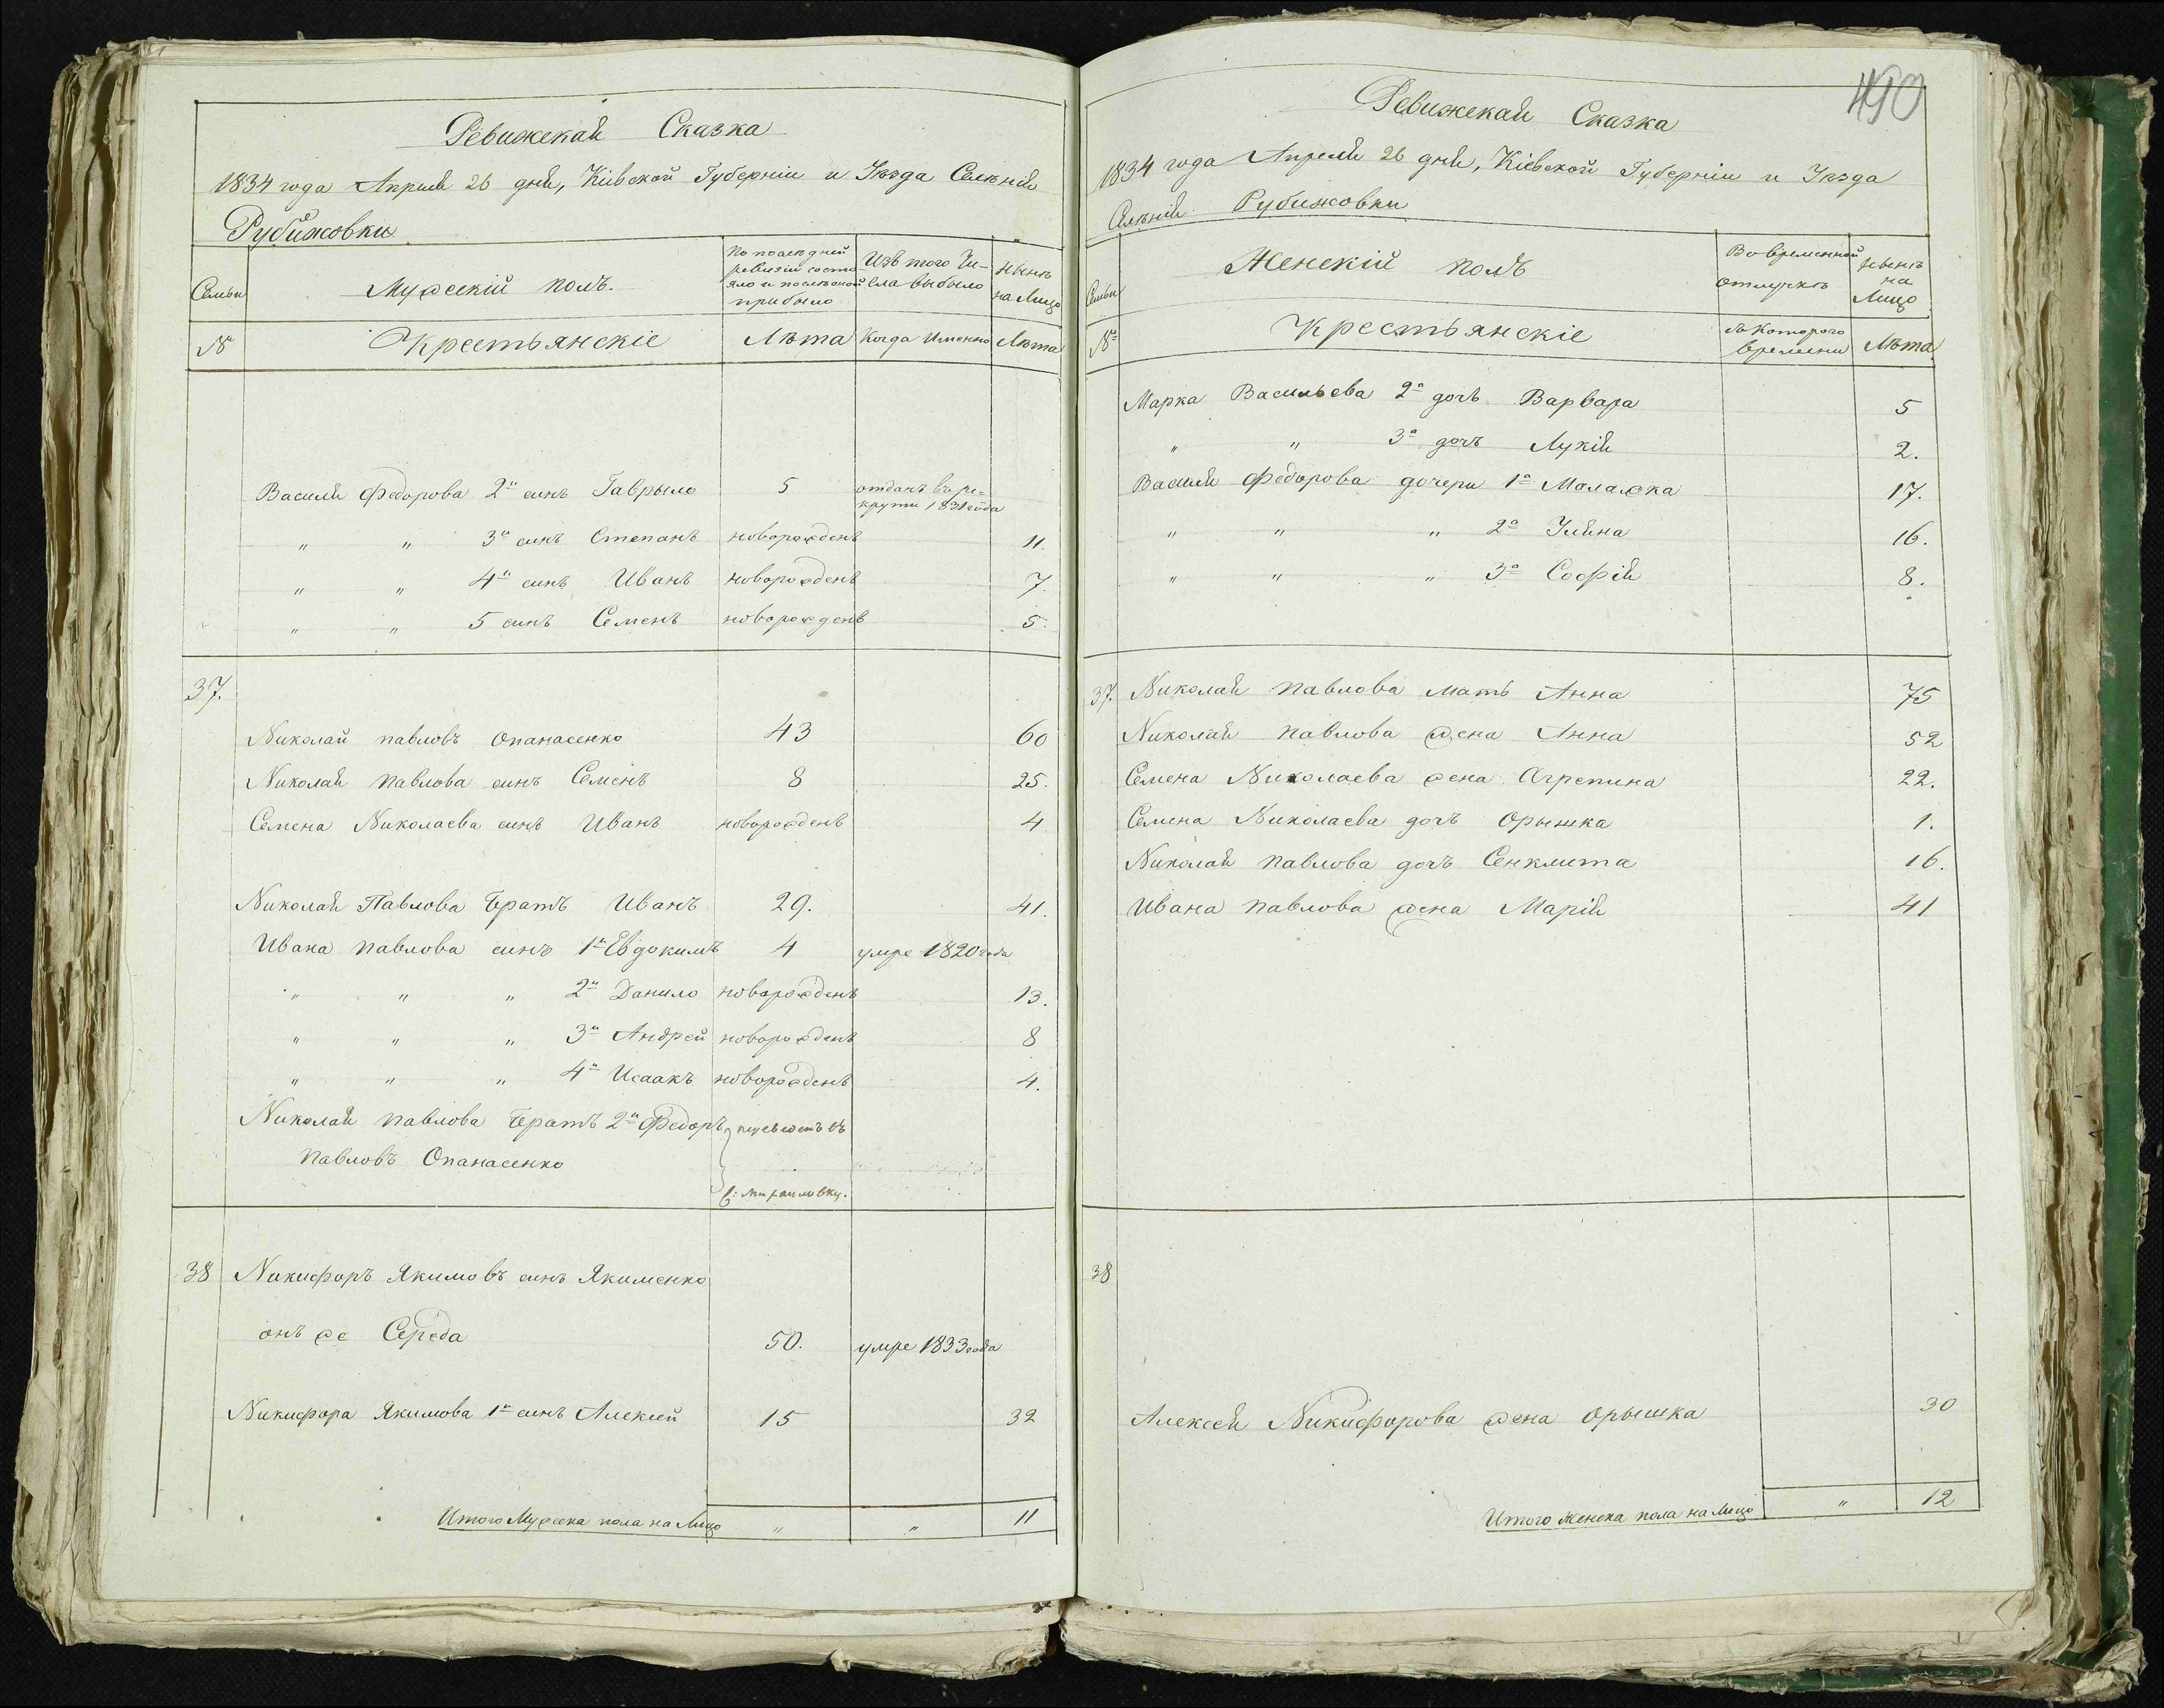 Ревижская Сказка
1834 года Априля 26 дня, Киівской Губерніи и Уѣзда Селѣнія
Рубижовки
Семьи
Мужескій полъ.
По последней ревизіи состояло и после оной прибыло
Изъ того Числа выбыло
нынѣ на Лицо
№
Крестьянскіе
Лѣта
Когда Именно
Лѣта
Василія Федорова 2й синъ Гаврыло 5 отданъ въ рекруты 1831 года
" " 3й синъ Степанъ новорожденъ 11.
" " 4й синъ Иванъ новорожденъ 7.
" " 5 синъ Семенъ новорожденъ 5.
37.
Николай павловъ Опанасенко 43 60
Николая павлова синъ Семенъ 8 25.
Семена Николаева синъ Иванъ новорожденъ 4
Николая Павлова братъ Иванъ 29. 41.
Ивана павлова синъ 1й Евдокимъ 4 умре 1820 года
" " " 2й Данило новорожденъ 13.
" " " 3й Андрей новорожденъ 8
" " " 4й Исаакъ новорожденъ 4.
Николая павлова братъ 2й Федоръ переведенъ въ
павловъ Опанасенко
с: Михайловку.
38 Никифоръ Якимовъ синъ Якименко
онъ же Середа 50. умре 1833 года
Никифора Якимова 1й синъ Алексей 15 32
Итого Мужеска пола на Лицо " " 11
490
Ревижская Сказка
1834 года Апреля 26 дня, Кіевской Губерніи и Уѣзда
Селѣнія Рубижовки
Семьи
Женскій полъ
Во временной отлучкѣ
нынѣ на Лицо
№
Крестьянскіе
съ Которого времени
Лѣта
Марка Васильева 2а дочъ Варвара 5
" " 3а дочъ Лукія 2.
Василія Федорова дочери 1а Малажка 17.
" " " 2а Улина 16.
" " " 3а Софія 8.
37. Николая павлова мать Анна 75
Николая павлова жена Анна 52
Семена Николаева жена Агрепина 22.
Семена Николаева дочъ Орышка 1.
Николая павлова дочъ Сенклита 16.
Ивана павлова жена Марія 41
38
Алексея Никифорова жена Орышка 30
Итого Женска пола на Лицо " 12